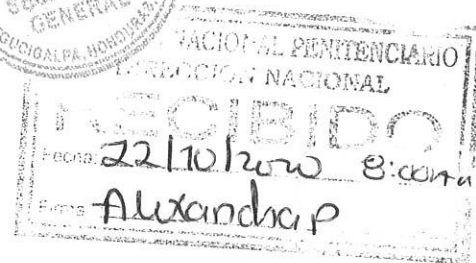 GENERAL
TEGUCIGALPA, HONDURAS
NACIONAL PENITENCIARIO
DIRECCION NACIONAL
RECIBIDO
Fecha: 22/10/2020 8:00am
Firma Alexandra P